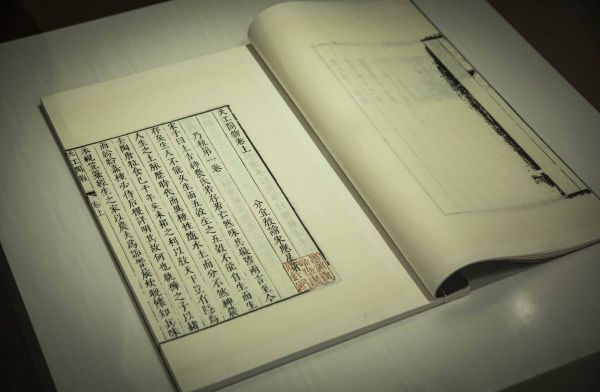 天工開物卷上
分宜教諭宋應星
乃粒第一卷
宋子曰上古神農氏若存若亡然味其徽號兩言至今
存矣生人不能久生而五穀生之五穀不能自生而生
人生之土脈歷時代而異種性隨水土而分不然神農
去陶唐粒食已千年矣耒耜之利以教天下豈有隱焉
而紛紛嘉種必待后稷詳明其故何也紈褲之子以赭
衣視笠簑經生之家以農夫為詬詈晨炊晚餉知其味
天工開物 卷上